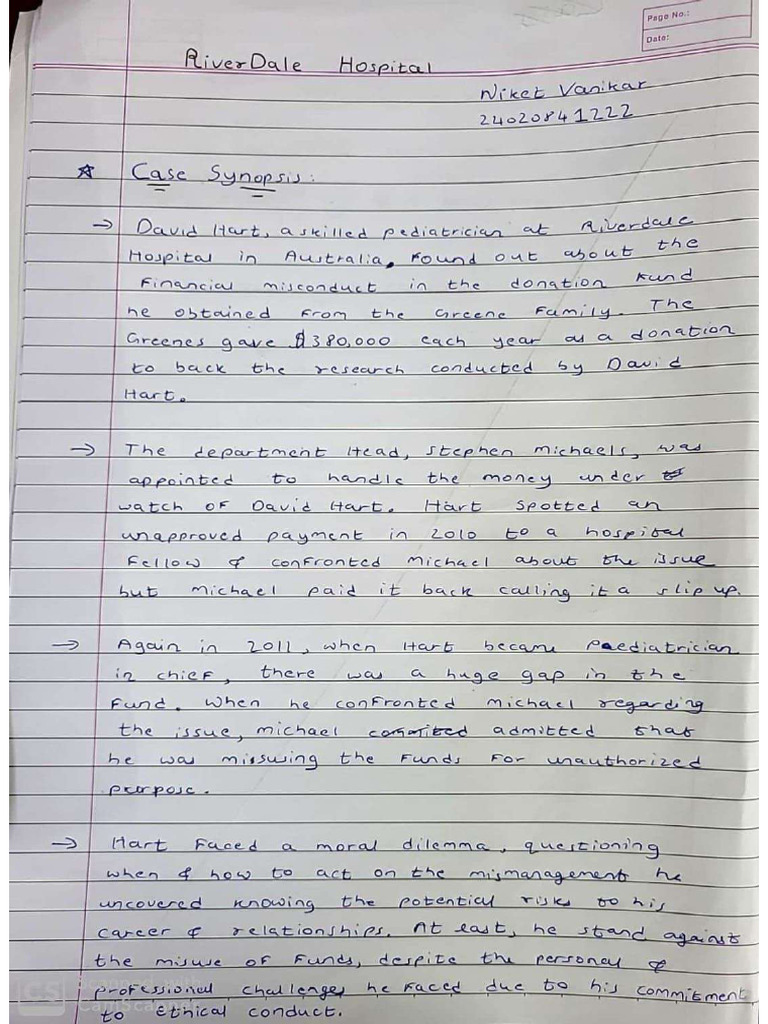 Page No.:
Date:
RiverDale Hospital
Niket Vanikar
24020841222
☆ Case Synopsis:
→ David Hart, a skilled pediatrician at Riverdale
Hospital in Australia, Found out about the
Financial misconduct in the donation Fund
he obtained From the Greene Family. The
Greenes gave $380,000 each year as a donation
to back the research conducted by David
Hart.
→ The department Head, Stephen Michaels, was
appointed to handle the money under
watch of David Hart. Hart spotted an
unapproved payment in 2010 to a hospital
Fellow & confronted Michael about the issue
but Michael paid it back calling it a slip up.
→ Again in 2011, when Hart became Paediatrician
in chief, there was a huge gap in the
Fund. When he confronted Michael regarding
the issue, Michael commited admitted that
he was missusing the Funds For unauthorized
purpose.
→ Hart Faced a moral dilemma, questioning
when & how to act on the mismanagement he
uncovered knowing the potential risks to his
career & relationships. At east, he stand against
the misuse of Funds, despite the personal &
professional challenges he Faced due to his commitment
to Ethical conduct.
CS CamScanner